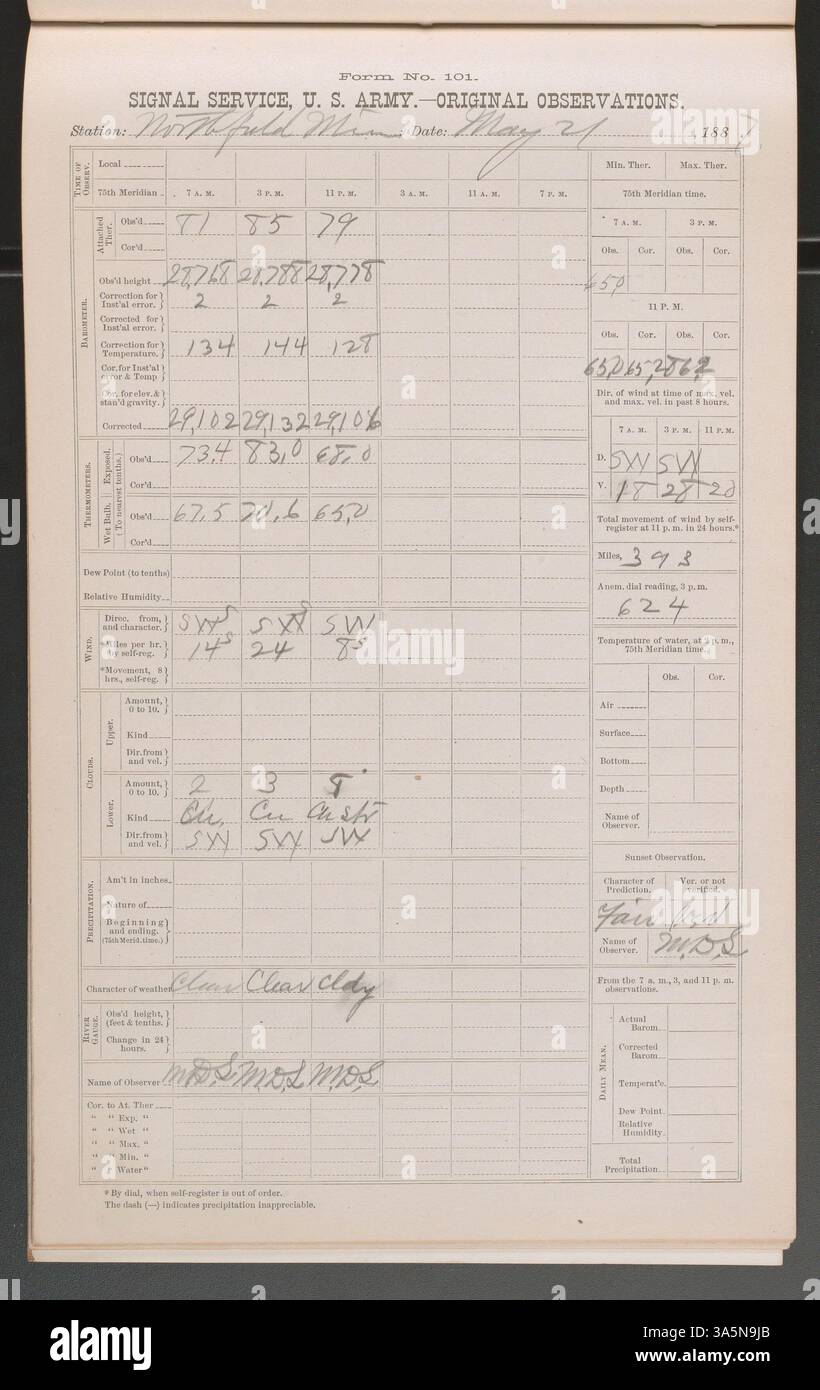 Form No. 101.
SIGNAL SERVICE, U. S. ARMY.—ORIGINAL OBSERVATIONS.
Station: Northfield Minn Date: May 21, 188
TIME OF OBSERV.
Local
75th Meridian 7 A. M. 3 P. M. 11 P. M. 3 A. M. 11 A. M. 7 P. M.
BAROMETER.
Attached Ther.
Obs'd 81 85 79
Cor'd
Obs'd height 28,768 28,788 28,778
Correction for Inst'al error. } 2 2 2
Corrected for Inst'al error. }
Correction for Temperature. } 134 144 128
Cor. for Inst'al error & Temp }
Cor. for elev. & stan'd gravity. }
Corrected 29,102 29,132 29,106
THERMOMETERS.
Exposed. (To nearest tenths.)
Obs'd 73.4 83,0 68,0
Cor'd
Wet Bulb.
Obs'd 67,5 70,6 65,0
Cor'd
Dew Point (to tenths)
Relative Humidity
WIND.
Direc. from, and character. } SW S SW S SW
*Miles per hr. by self-reg. } 14 S 24 8 S
*Movement, 8 hrs., self-reg. }
CLOUDS.
Upper.
Amount, 0 to 10. }
Kind
Dir. from and vel. }
Lower.
Amount, 0 to 10. } 2 3
Kind Cu. Cu Cu Str
Dir. from and vel. } SW SW SW
PRECIPITATION.
Am't in inches.
Nature of
Beginning and ending. (75th Merid. time.) }
Character of weather Clear Clear Cldy
RIVER GAUGE.
Obs'd height, (feet & tenths. }
Change in 24 hours. }
Name of Observer M.D.S. M.D.S. M.D.S.
Cor. to At. Ther
" " Exp. "
" " Wet "
" " Max. "
" " Min. "
" " Water "
* By dial, when self-register is out of order.
The dash (—) indicates precipitation inappreciable.
Min. Ther. Max. Ther.
75th Meridian time.
7 A. M. 3 P. M.
Obs. Cor. Obs. Cor.
650
11 P. M.
Obs. Cor. Obs. Cor.
65,0 65,2 86,2
Dir. of wind at time of max. vel. and max. vel. in past 8 hours.
7 A. M. 3 P. M. 11 P. M.
D. SW SW
V. 18 28 20
Total movement of wind by self-register at 11 p. m. in 24 hours.*
Miles, 393
Anem. dial reading, 3 p. m.
624
Temperature of water, at 2 p. m., 75th Meridian time.
Obs. Cor.
Air
Surface
Bottom
Depth
Name of Observer.
Sunset Observation.
Character of Prediction. Ver. or not verified.
Fair
Name of Observer. M.D.S
From the 7 a. m., 3, and 11 p. m. observations.
DAILY MEAN.
Actual Barom.
Corrected Barom.
Temperat'e.
Dew Point.
Relative Humidity.
Total Precipitation.
alamy
a
alamy
Image ID: 3A5N9JB
www.alamy.com